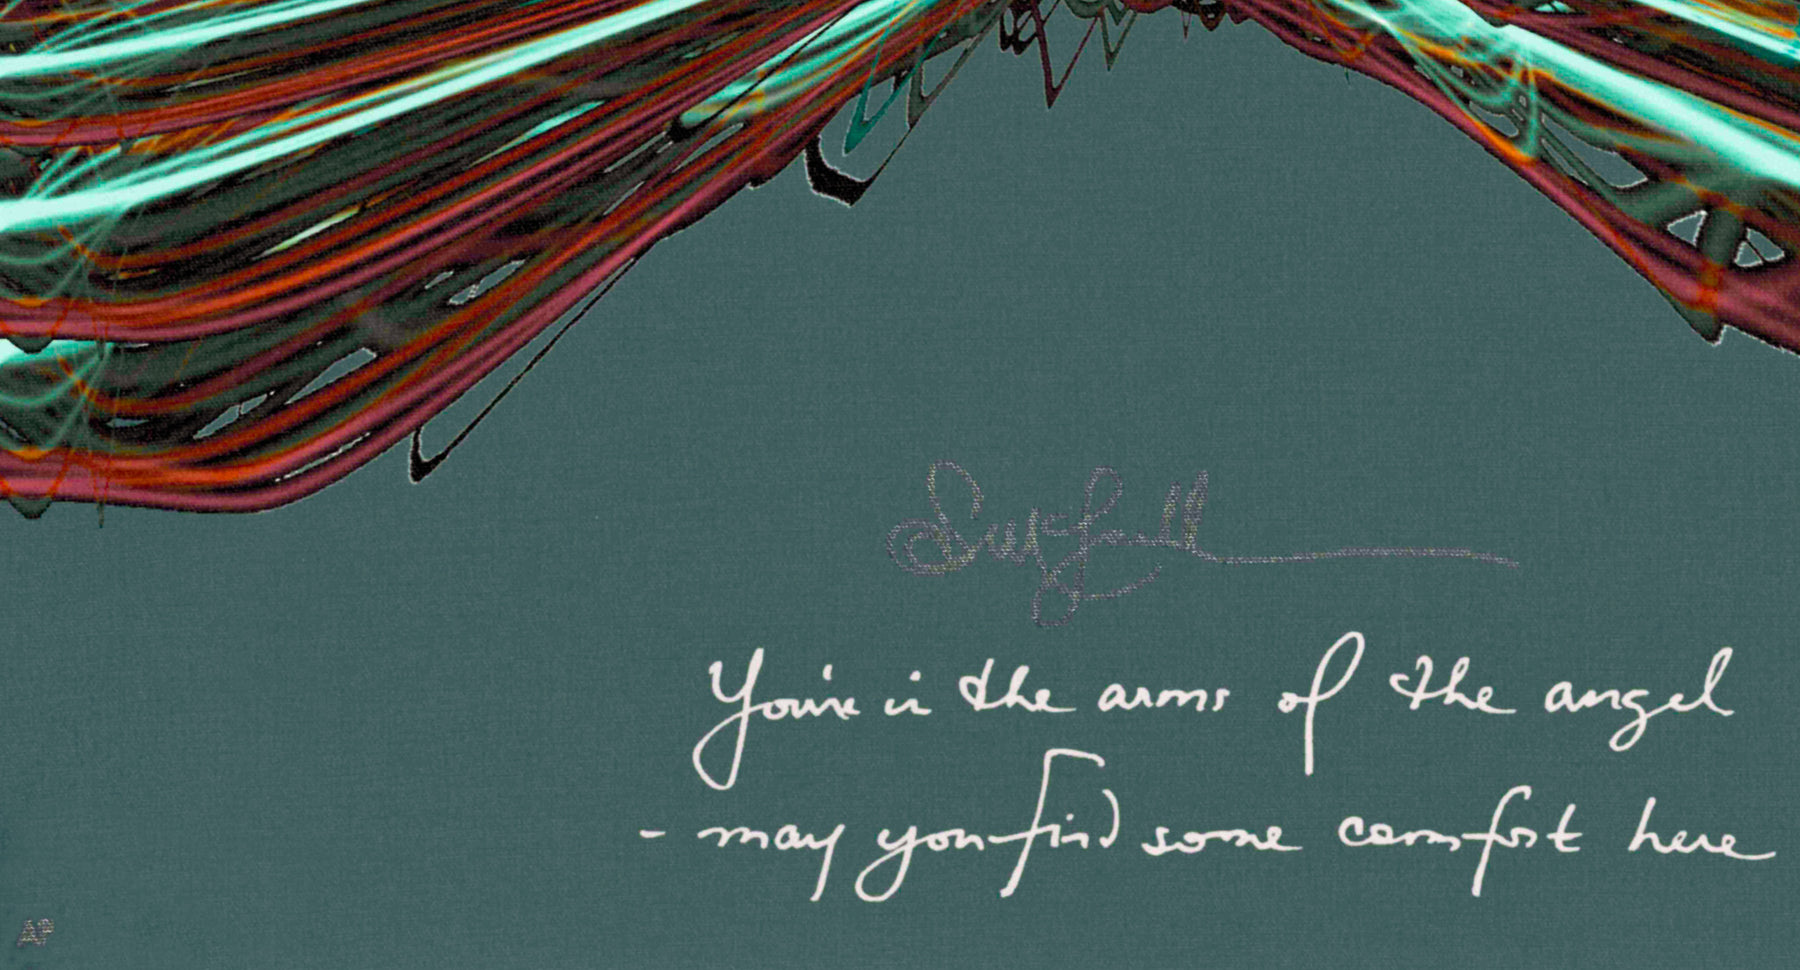 You're in the arms of the angel
- may you find some comfort here
AP